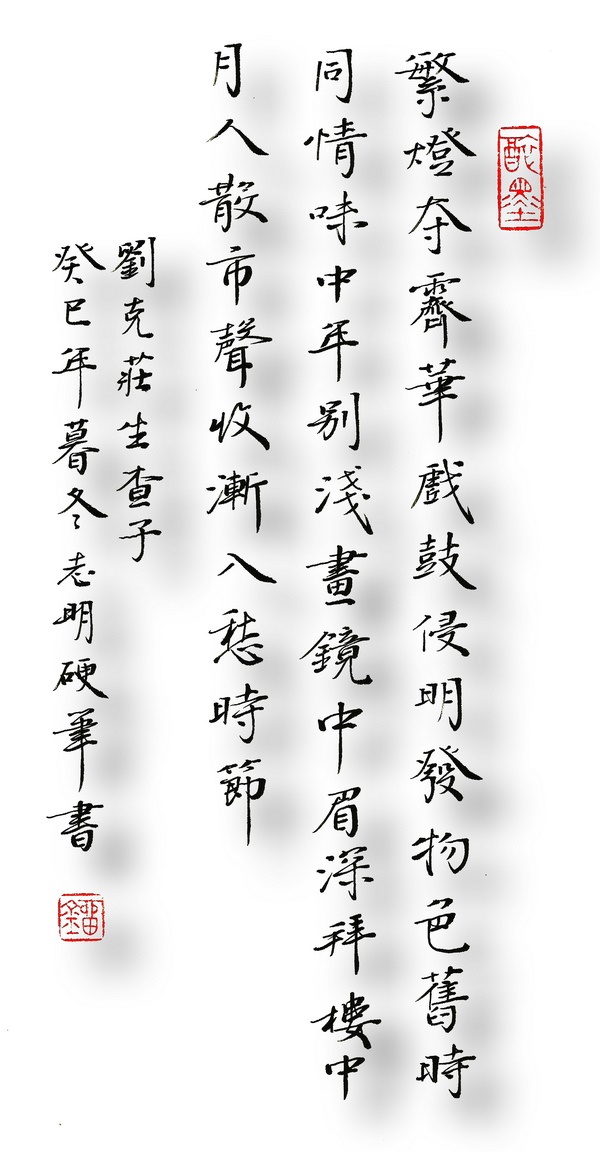 繁燈夺霽華戲鼓侵明發物色舊時
同情味中年别淺畫鏡中眉深拜樓中
月人散市聲收漸入愁時節
劉克莊生查子
癸巳年暮冬志明硬筆書